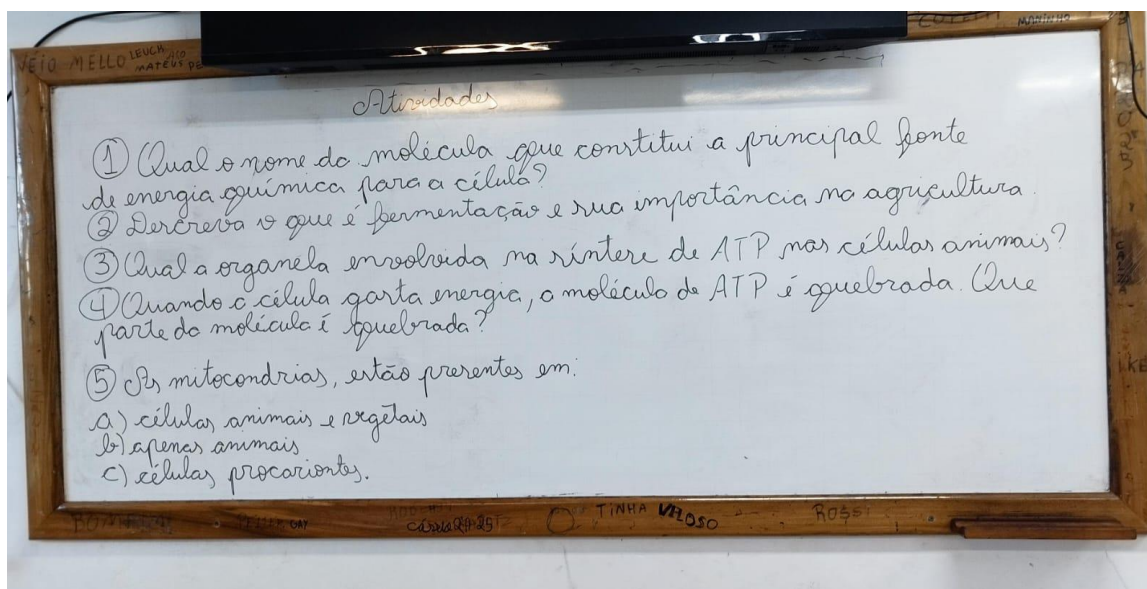 VEIO MELLO LEUCK
MATEUS
MANINHO
Atividades
① Qual o nome da molécula que constitui a principal fonte
de energia química para a célula?
② Descreva o que é fermentação e sua importância na agricultura.
③ Qual a organela envolvida na síntese de ATP nas células animais?
④ Quando a célula gasta energia, a molécula de ATP é quebrada. Que
parte da molécula é quebrada?
⑤ As mitocondrias, estão presentes em:
a) células animais e vegetais
b) apenas animais
c) células procariontes.
TINHA VELOSO
ROSSI